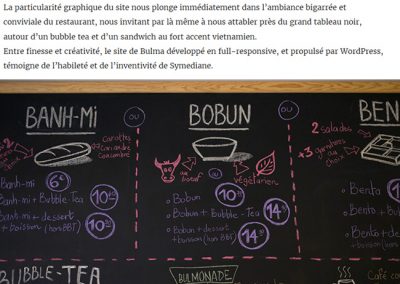 La particularité graphique du site nous plonge immédiatement dans l'ambiance bigarrée et
conviviale du restaurant, nous invitant par là même à nous attabler près du grand tableau noir,
autour d'un bubble tea et d'un sandwich au fort accent vietnamien.
Entre finesse et créativité, le site de Bulma développé en full-responsive, et propulsé par WordPress,
témoigne de l'habileté et de l'inventivité de Symediane.
BANH-Mi
OU
BOBUN
OU
BEN
2
Carottes
Coriandre
Concombre
2 salades
+3 garnitures
au choix
au bœuf
OU
végétarien
Banh-mi 6€
Banh-mi + Bubble Tea 10
Banh mi + dessert
+ boisson (hors BBT) 10
Bobun 10
Bobun + Bubble-Tea 14
Bobun + dessert
+ boisson (hors BBT) 14
Bento
Bento +
Bento +
BUBBLE-TEA
BULMONADE
Café